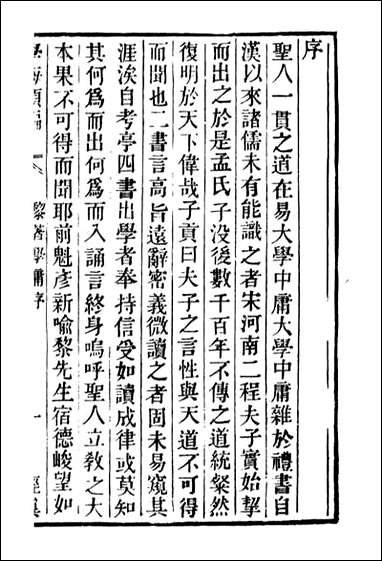 序
聖人一貫之道在易大學中庸大學中庸雜於禮書自
漢以來諸儒未有能識之者宋河南二程夫子實始挈
而出之於是孟氏子没後數千百年不傳之道統粲然
復明於天下偉哉子貢曰夫子之言性與天道不可得
而聞也二書言高旨遠辭密義微讀之者固未易窺其
涯涘自考亭四書出學者奉持信受如讀成律或莫知
其何爲而出何爲而入誦言終身嗚呼聖人立敎之大
本果不可得而聞耶前魁彥新喻黎先生宿德峻望如
學海類編
黎著學庸序
一